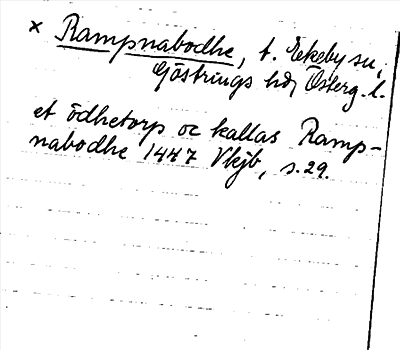 × Rampnabodhe, t. Ekeby sn,
Göstrings hd, Österg. l.
et ödhetorp oc kallas Ramp-
nabodhe 1447 Vkjb, s. 29.